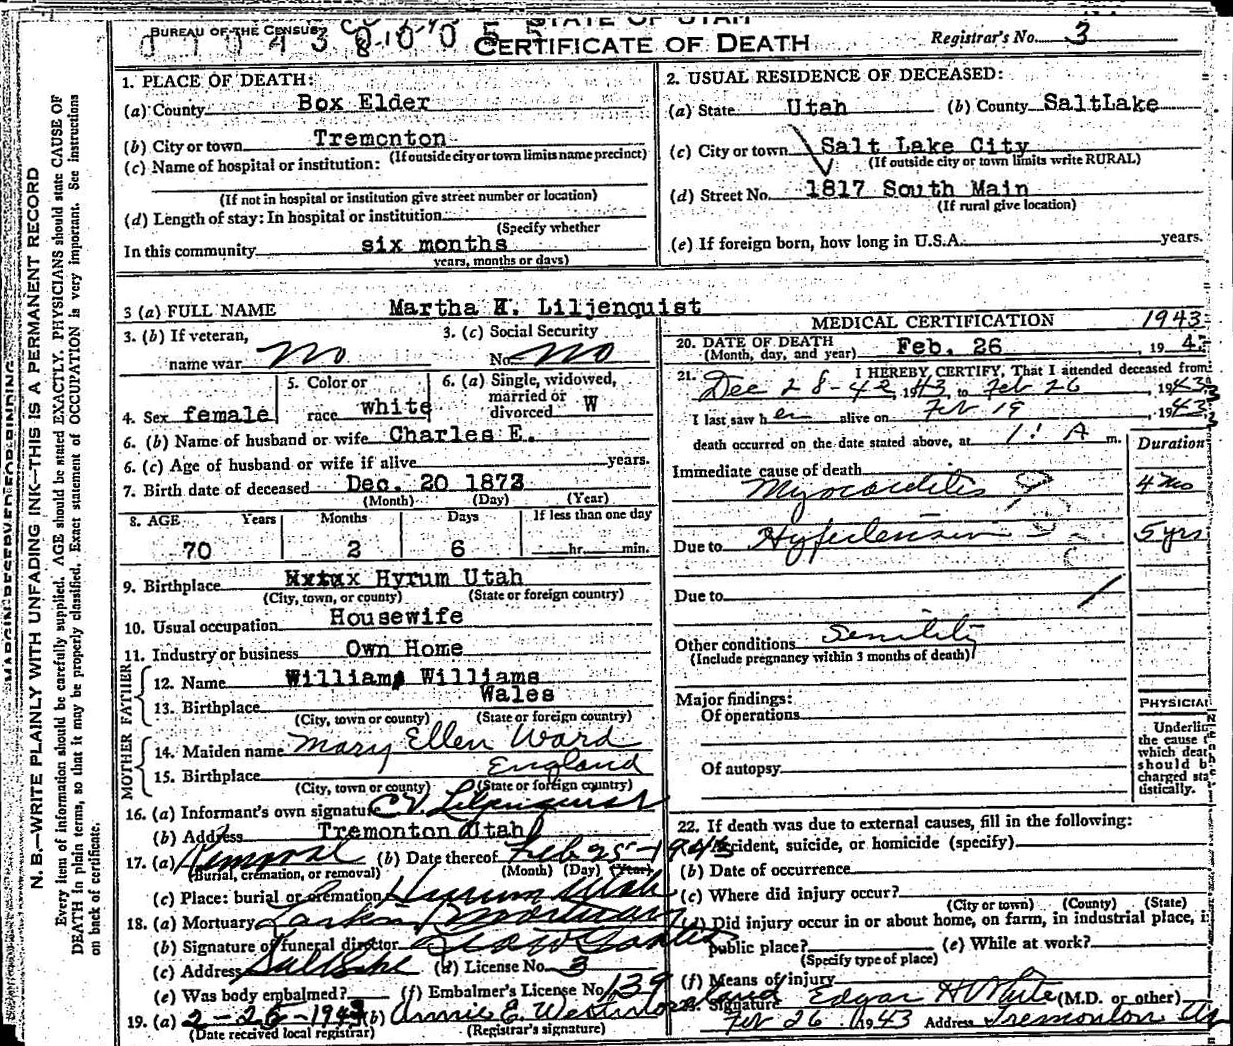 STATE OF UTAH
BUREAU OF THE CENSUS
CERTIFICATE OF DEATH
Registrar's No. 3
1. PLACE OF DEATH:
(a) County Box Elder
(b) City or town Tremonton
(If outside city or town limits name precinct)
(c) Name of hospital or institution:
(If not in hospital or institution give street number or location)
(d) Length of stay: In hospital or institution
(Specify whether
In this community six months
years, months or days)
2. USUAL RESIDENCE OF DECEASED:
(a) State Utah (b) County SaltLake
(c) City or town Salt Lake City
(If outside city or town limits write RURAL)
(d) Street No. 1817 South Main
(If rural give location)
(e) If foreign born, how long in U.S.A. years.
3 (a) FULL NAME Martha H. Liljenquist
3. (b) If veteran,
name war No
3. (c) Social Security
No. No
4. Sex female
5. Color or
race white
6. (a) Single, widowed,
married or
divorced W
6. (b) Name of husband or wife Charles E.
6. (c) Age of husband or wife if alive years.
7. Birth date of deceased Dec. 20 1872
(Month) (Day) (Year)
8. AGE Years Months Days If less than one day
70 2 6 hr. min.
9. Birthplace Hyrum Utah
(City, town, or county) (State or foreign country)
10. Usual occupation Housewife
11. Industry or business Own Home
FATHER
12. Name William Williams
13. Birthplace Wales
(City, town or county) (State or foreign country)
MOTHER
14. Maiden name Mary Ellen Ward
15. Birthplace England
(City, town or county) (State or foreign country)
16. (a) Informant's own signature C.V. Liljenquist
(b) Address Tremonton Utah
17. (a) Removal (b) Date thereof Feb 25-1943
(Burial, cremation, or removal) (Month) (Day) (Year)
(c) Place: burial or cremation Hyrum Utah
18. (a) Mortuary Larkin Mortuary
(b) Signature of funeral director
(c) Address Salt Lake (d) License No. 3
(e) Was body embalmed? (f) Embalmer's License No. 139
19. (a) 2-26-1943 (b) Annie E.
(Date received local registrar) (Registrar's signature)
MEDICAL CERTIFICATION 1943
20. DATE OF DEATH
(Month, day, and year) Feb. 26, 194
21. I HEREBY CERTIFY, That I attended deceased from
Dec 28-42, 1943, to Feb 26, 1943
I last saw her alive on Feb 19, 1943
death occurred on the date stated above, at 1: A m.
Duration
Immediate cause of death
Myocarditis 4 mo
Due to Hypertension 5 yrs
Due to
Other conditions Senility
(Include pregnancy within 3 months of death)
Major findings:
Of operations
Of autopsy
PHYSICIAN
Underline
the cause t
which death
should b
charged sta
tistically.
22. If death was due to external causes, fill in the following:
Accident, suicide, or homicide (specify)
(b) Date of occurrence
(c) Where did injury occur?
(City or town) (County) (State)
(d) Did injury occur in or about home, on farm, in industrial place, i
public place? (e) While at work?
(Specify type of place)
(f) Means of injury
Signature Edgar H White (M.D. or other)
Feb 26 1943 Address Tremonton
MARGIN RESERVED FOR BINDING
N. B.—WRITE PLAINLY WITH UNFADING INK—THIS IS A PERMANENT RECORD
Every item of information should be carefully supplied. AGE should be stated EXACTLY. PHYSICIANS should state CAUSE OF
DEATH in plain terms, so that it may be properly classified. Exact statement of OCCUPATION is very important. See instructions
on back of certificate.